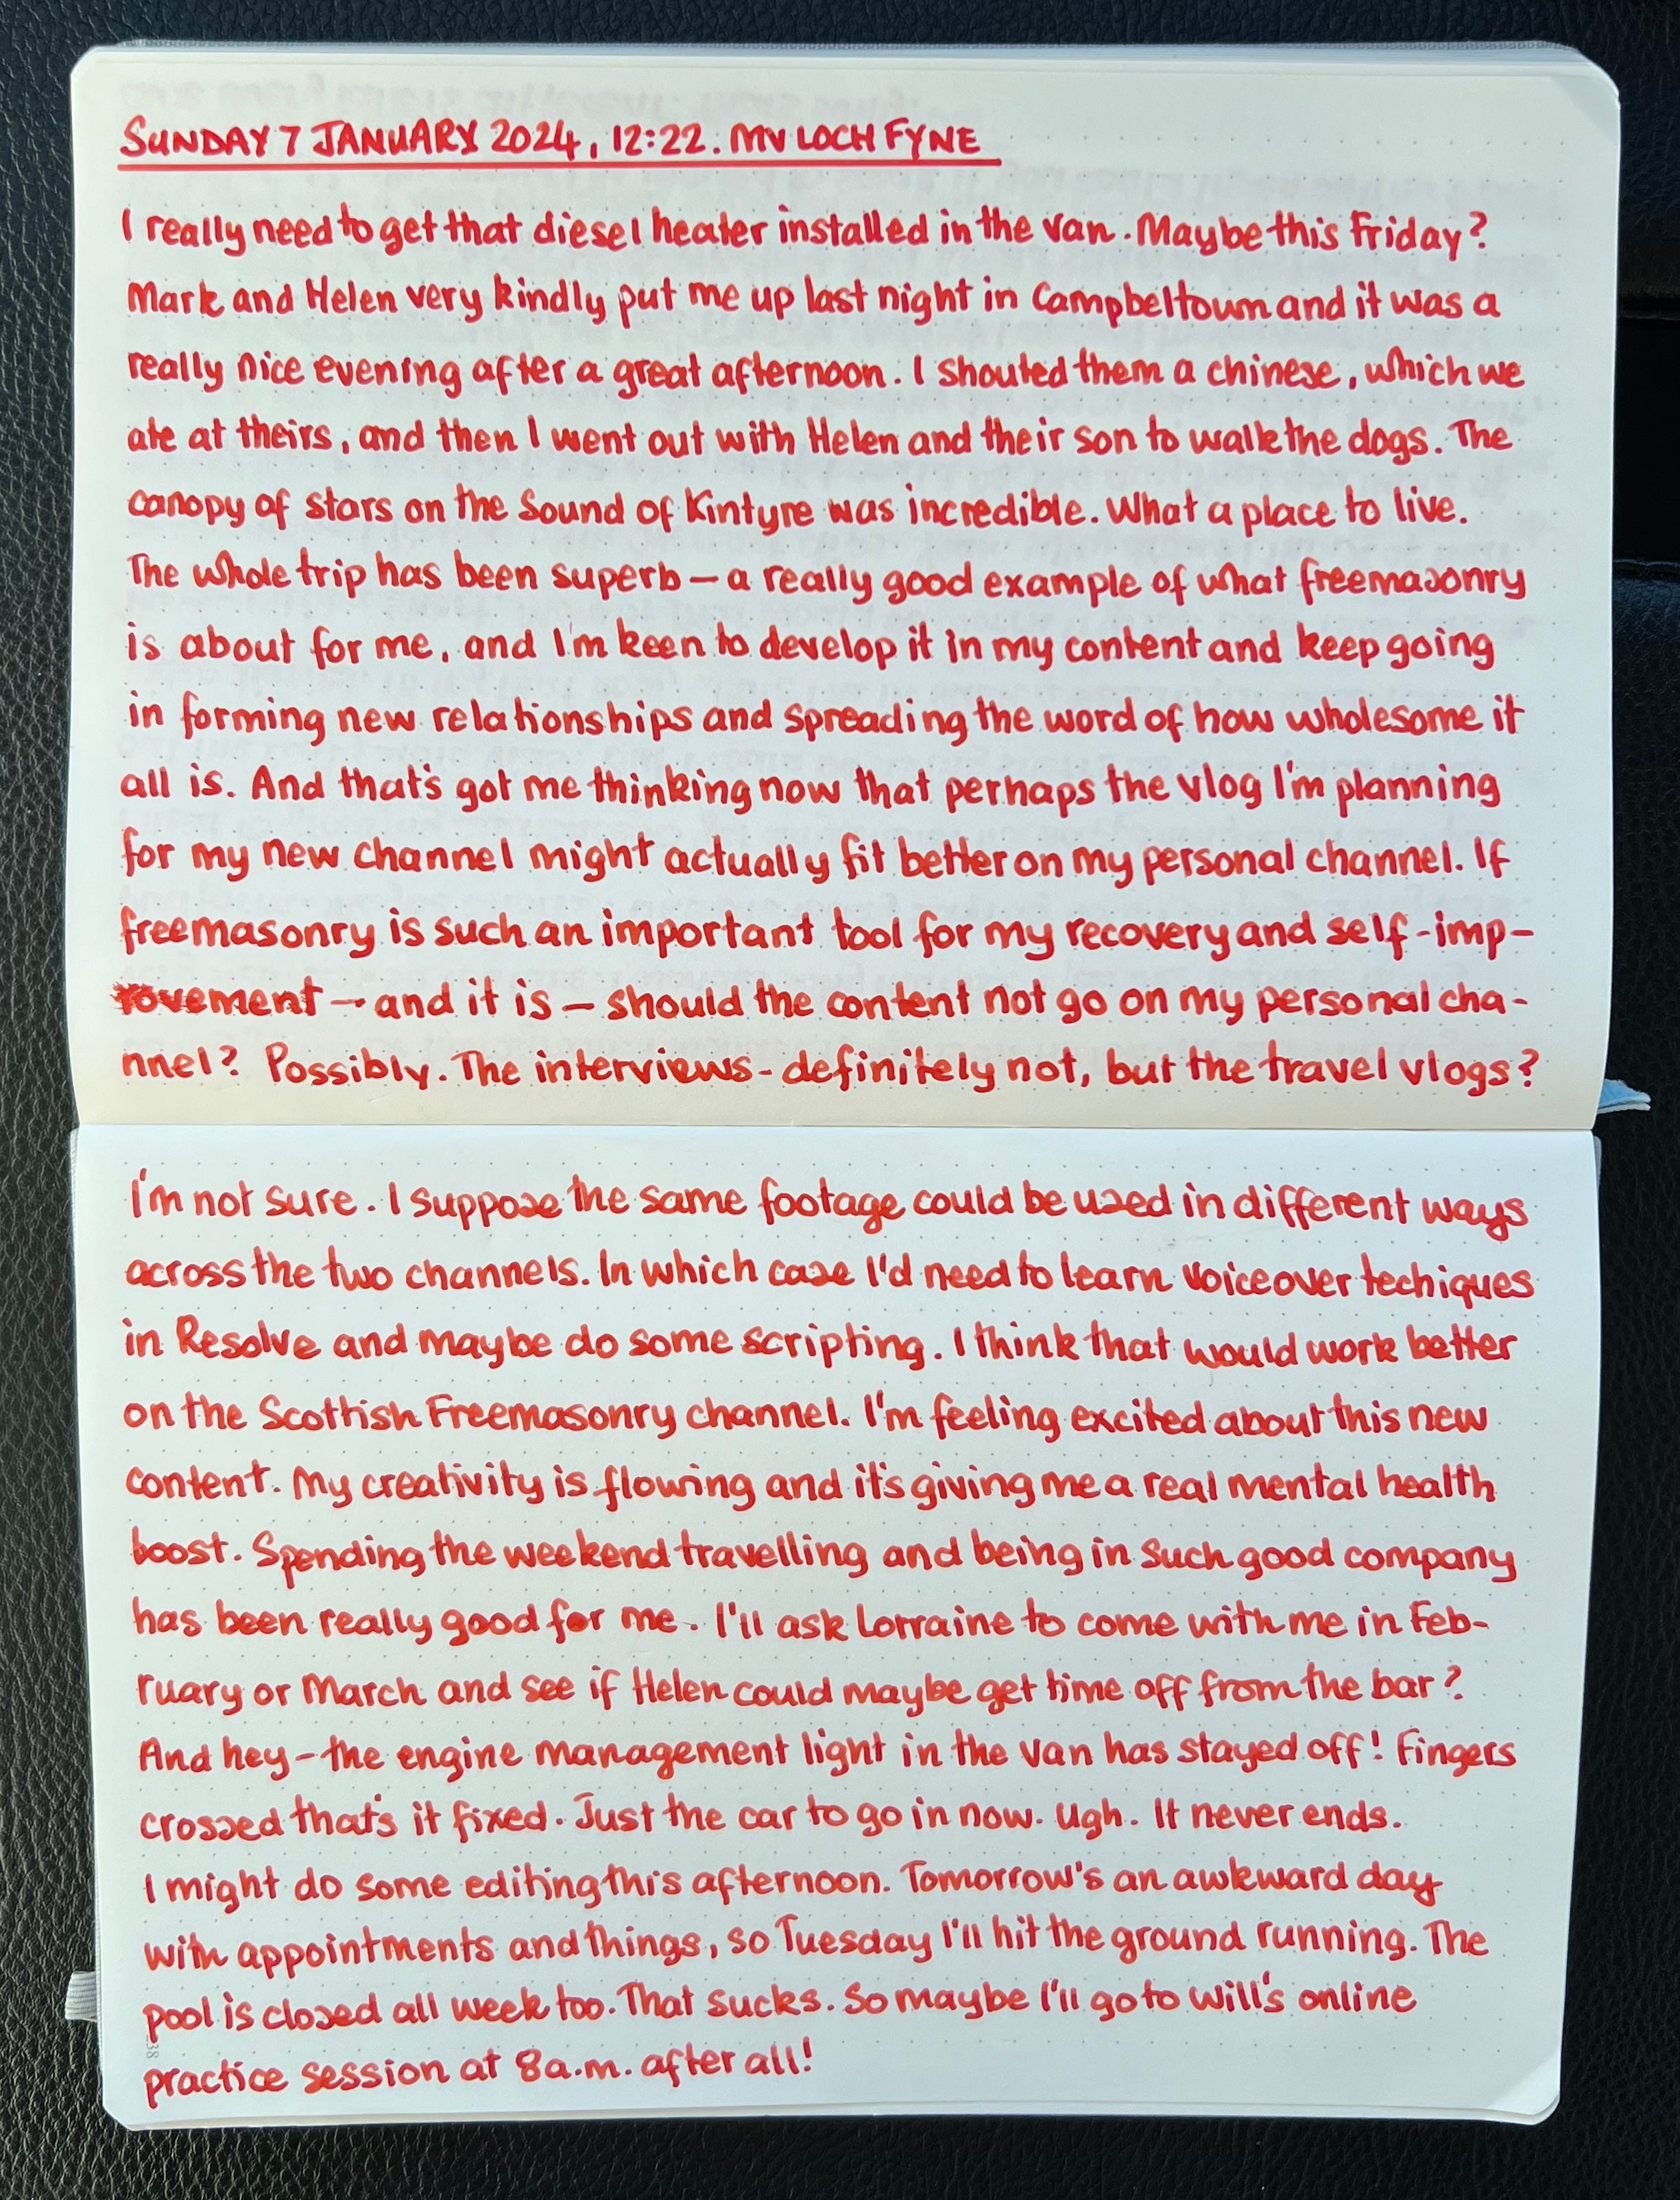 SUNDAY 7 JANUARY 2024, 12:22. MV LOCH FYNE
I really need to get that diesel heater installed in the van. Maybe this Friday?
Mark and Helen very kindly put me up last night in Campbeltown and it was a
really nice evening after a great afternoon. I shouted them a chinese, which we
ate at theirs, and then I went out with Helen and their son to walk the dogs. The
canopy of stars on the Sound of Kintyre was incredible. What a place to live.
The whole trip has been superb — a really good example of what freemasonry
is about for me, and I'm keen to develop it in my content and keep going
in forming new relationships and spreading the word of how wholesome it
all is. And that's got me thinking now that perhaps the vlog I'm planning
for my new channel might actually fit better on my personal channel. If
freemasonry is such an important tool for my recovery and self-imp-
rovement — and it is — should the content not go on my personal cha-
nnel? Possibly. The interviews - definitely not, but the travel vlogs?
I'm not sure. I suppose the same footage could be used in different ways
across the two channels. In which case I'd need to learn voiceover techiques
in Resolve and maybe do some scripting. I think that would work better
on the Scottish Freemasonry channel. I'm feeling excited about this new
content. My creativity is flowing and it's giving me a real mental health
boost. Spending the weekend travelling and being in such good company
has been really good for me. I'll ask Lorraine to come with me in Feb-
ruary or March and see if Helen could maybe get time off from the bar?
And hey — the engine management light in the van has stayed off! Fingers
crossed that's it fixed. Just the car to go in now. Ugh. It never ends.
I might do some editing this afternoon. Tomorrow's an awkward day
with appointments and things, so Tuesday I'll hit the ground running. The
pool is closed all week too. That sucks. So maybe I'll go to Will's online
practice session at 8a.m. after all!